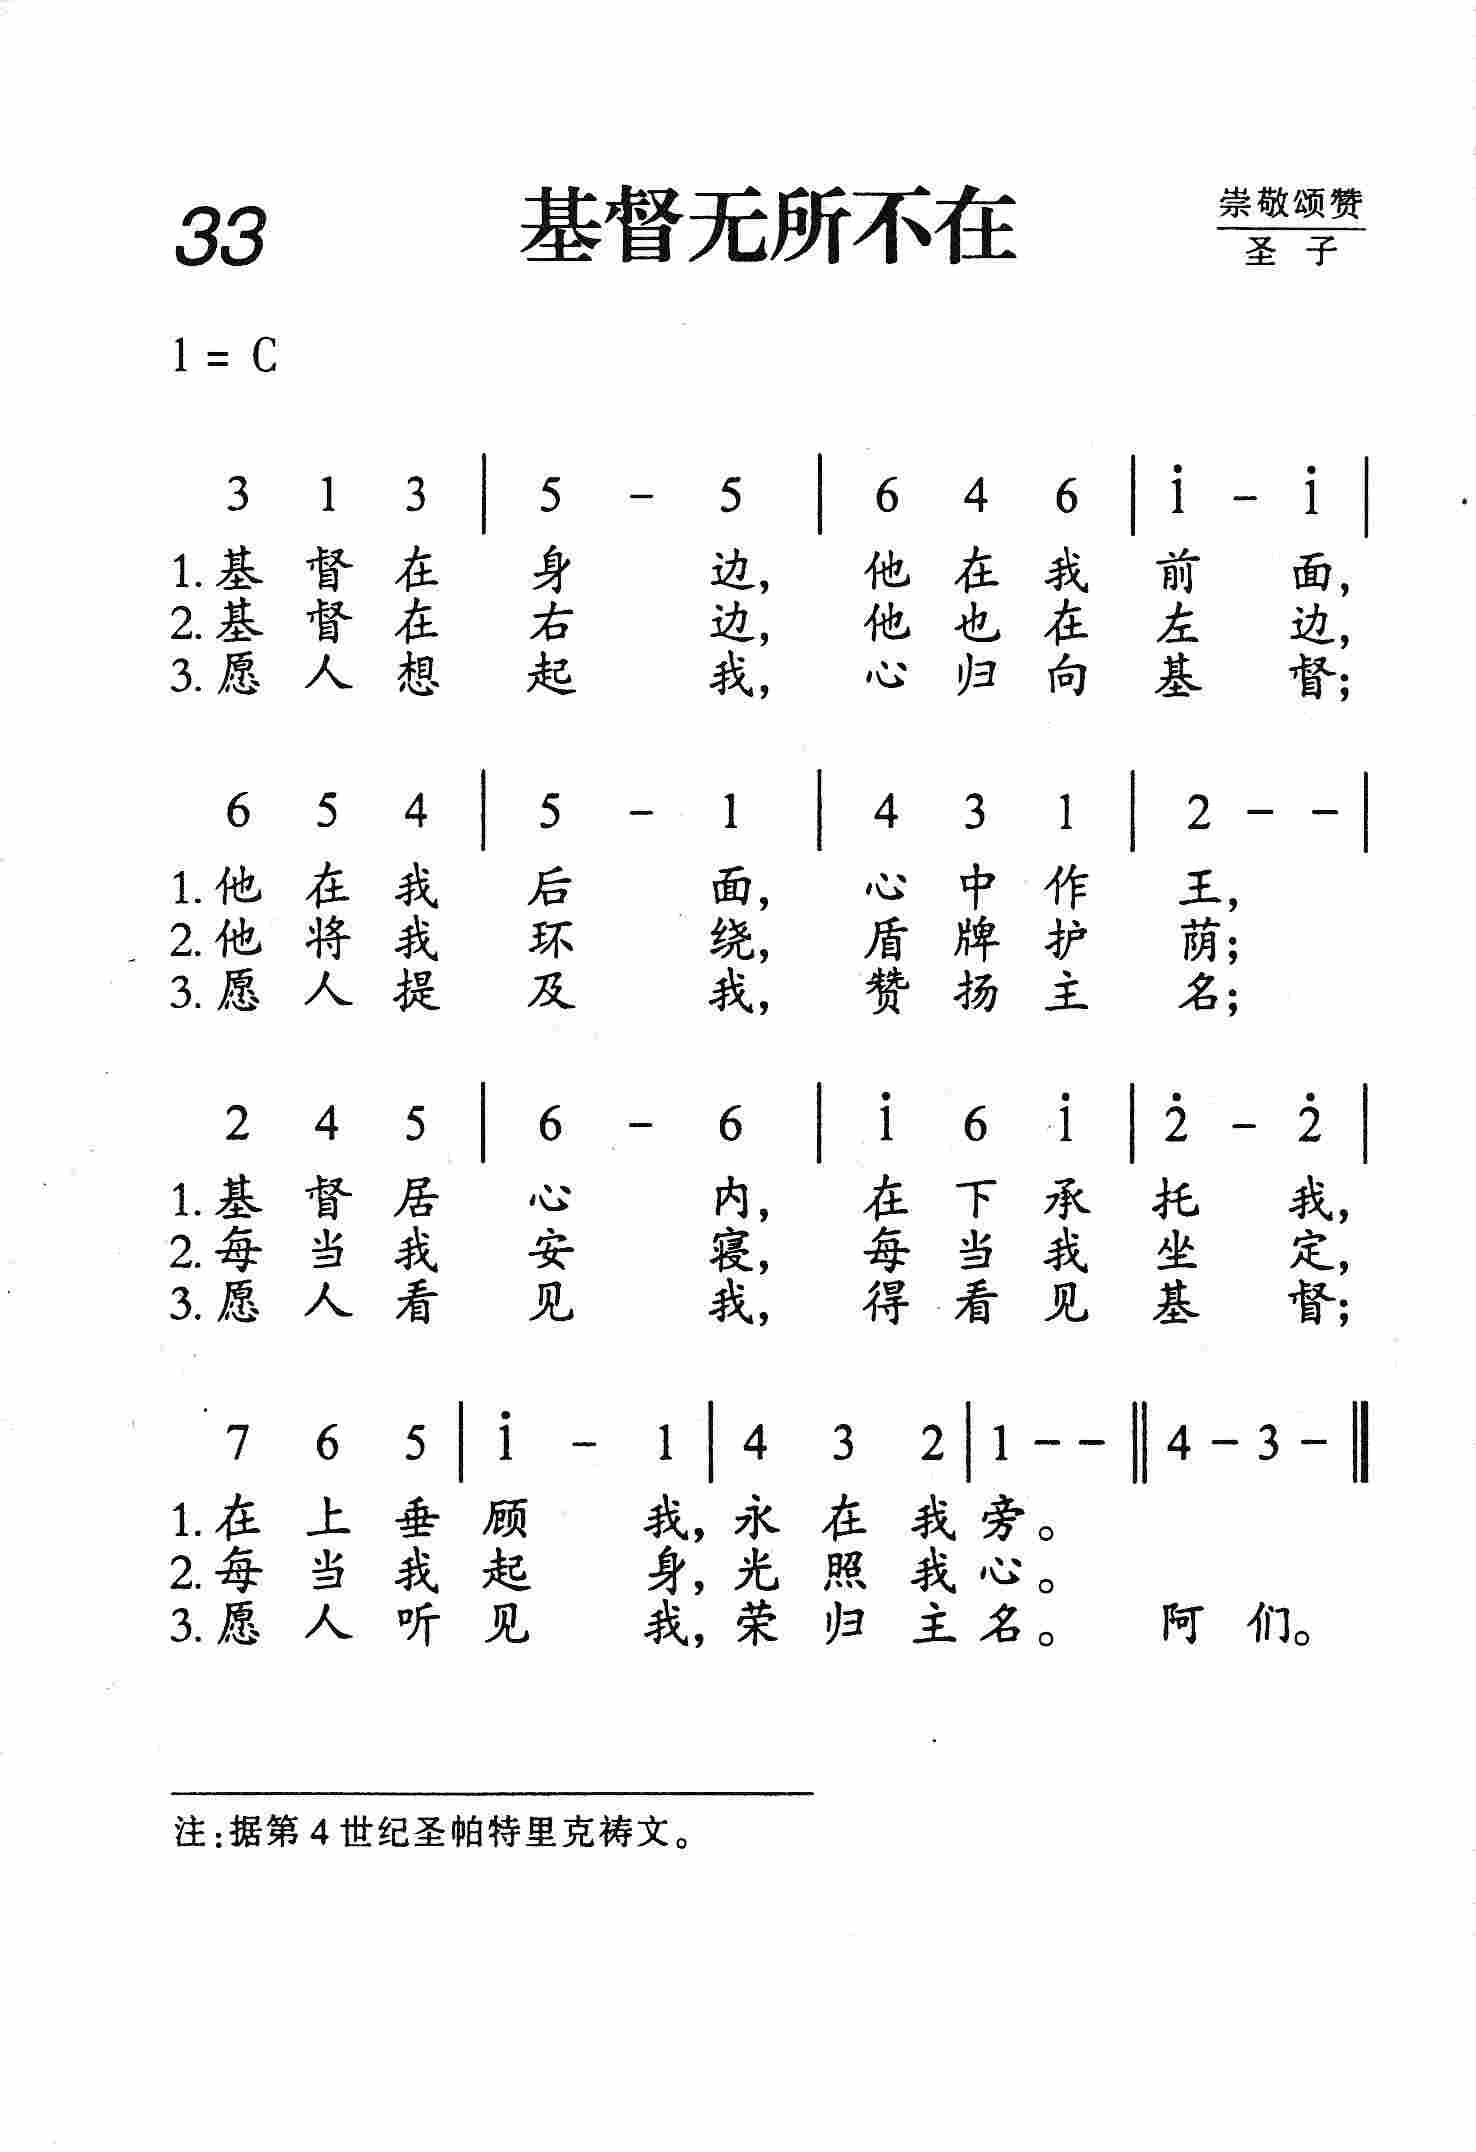 33 基督无所不在 崇敬颂赞
圣 子
1 = C
3 1 3 | 5 - 5 | 6 4 6 | i - i |
1. 基 督 在 身 边, 他 在 我 前 面,
2. 基 督 在 右 边, 他 也 在 左 边,
3. 愿 人 想 起 我, 心 归 向 基 督;
6 5 4 | 5 - 1 | 4 3 1 | 2 - - |
1. 他 在 我 后 面, 心 中 作 王,
2. 他 将 我 环 绕, 盾 牌 护 荫;
3. 愿 人 提 及 我, 赞 扬 主 名;
2 4 5 | 6 - 6 | i 6 i | 2̇ - 2̇ |
1. 基 督 居 心 内, 在 下 承 托 我,
2. 每 当 我 安 寝, 每 当 我 坐 定,
3. 愿 人 看 见 我, 得 看 见 基 督;
7 6 5 | i - 1 | 4 3 2 | 1 - - ‖ 4 - 3 - ‖
1. 在 上 垂 顾 我, 永 在 我 旁。
2. 每 当 我 起 身, 光 照 我 心。
3. 愿 人 听 见 我, 荣 归 主 名。 阿 们。
注:据第 4 世纪圣帕特里克祷文。